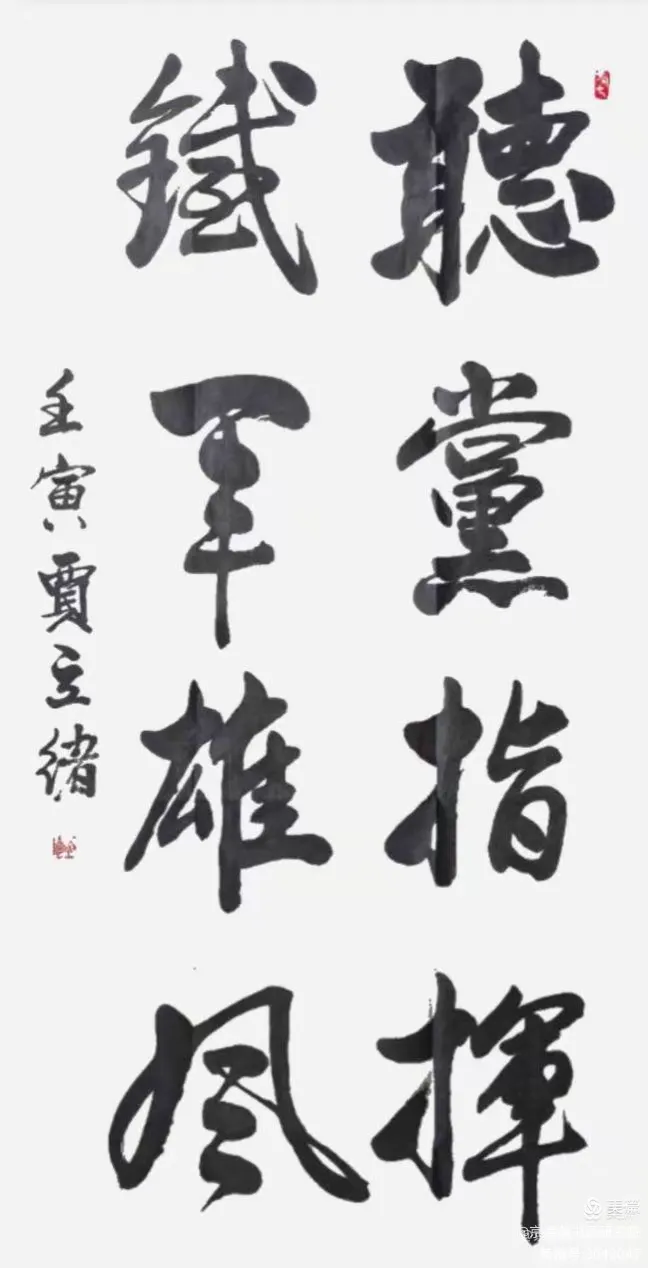 聽黨指揮
鐵軍雄風
壬寅賈立緒
美篇